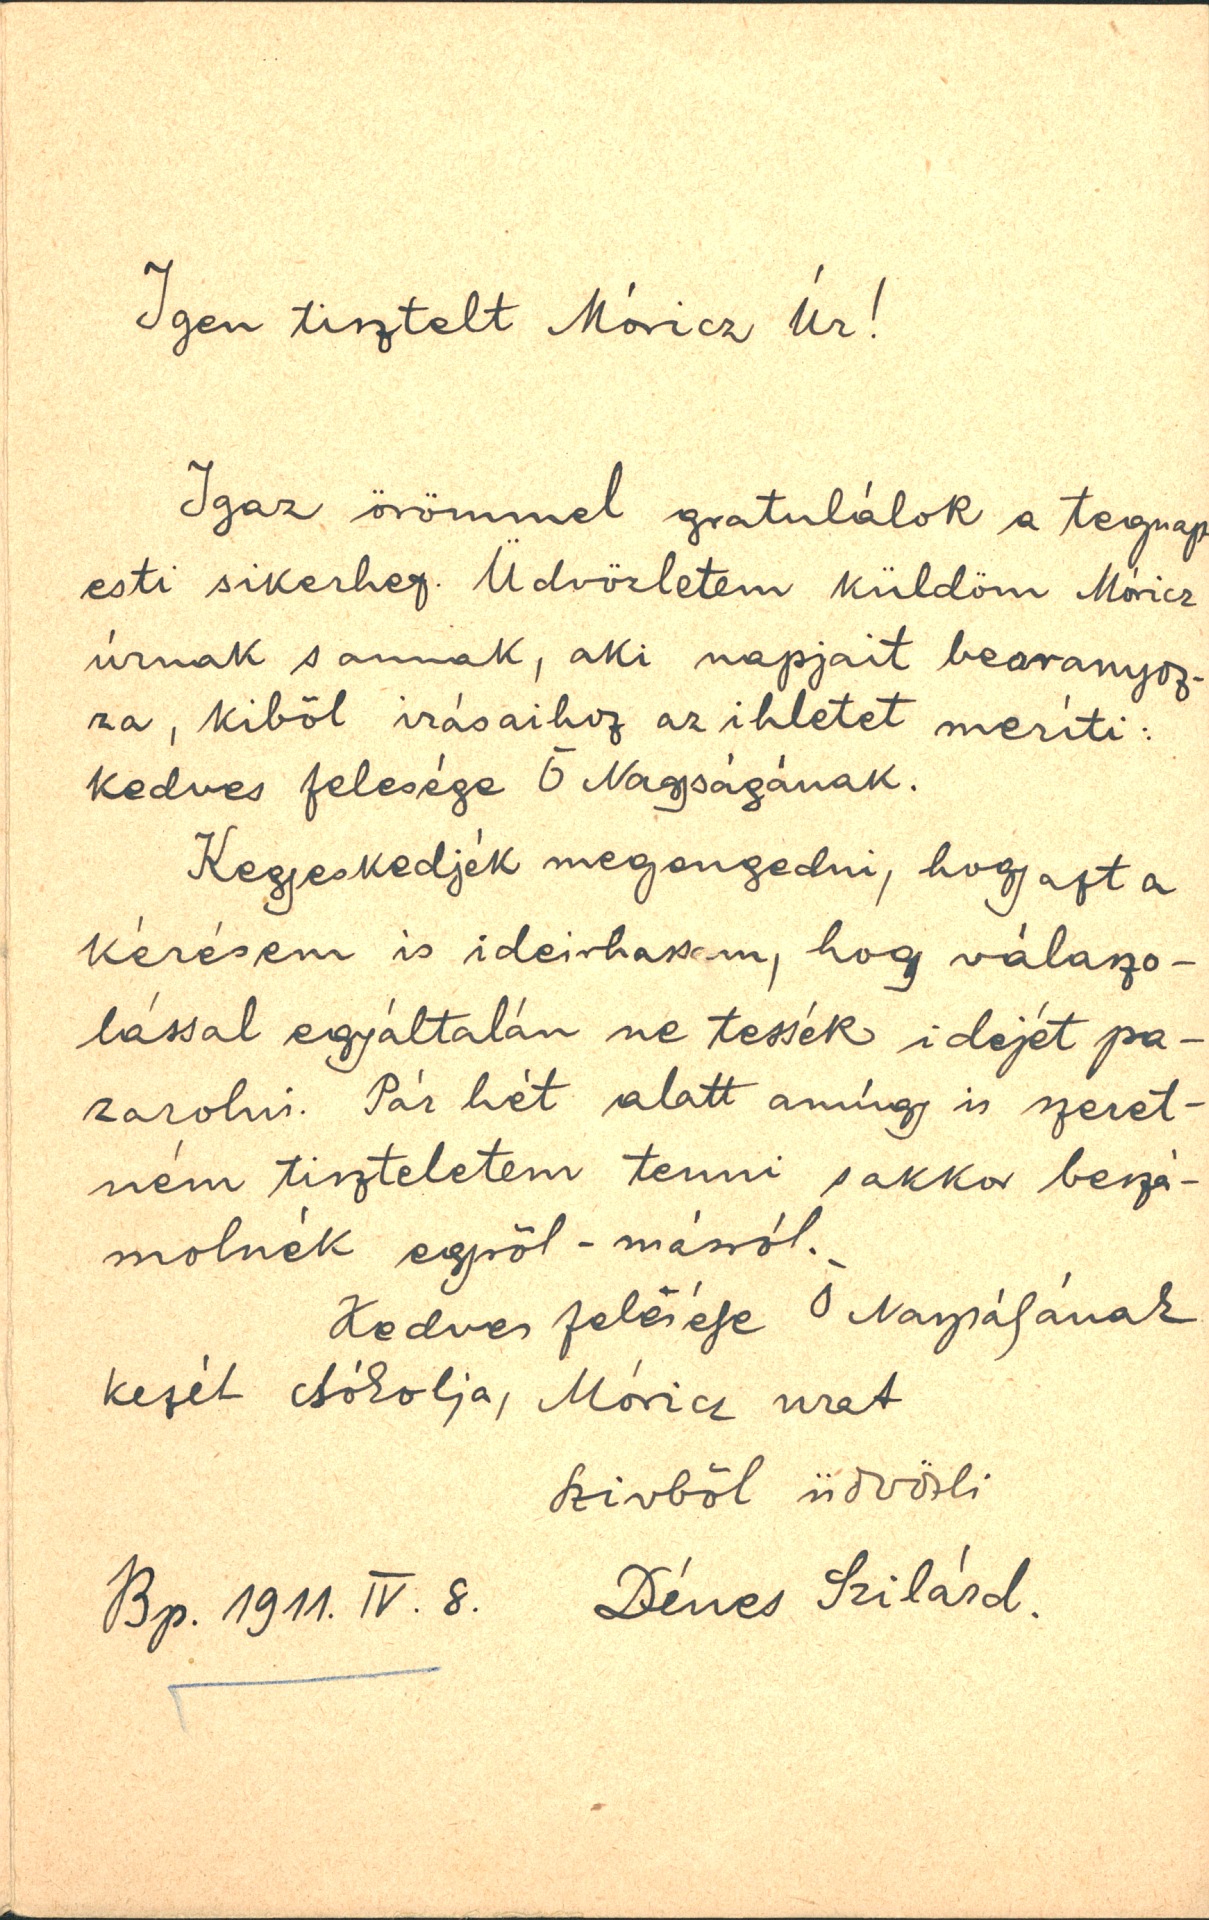 Igen tisztelt Móricz Úr!
Igaz örömmel gratulálok a tegnap
esti sikerhez. Üdvözletem küldöm Móricz
úrnak s annak, aki napjait bearanyoz-
za, kiből irásaihoz az ihletet meríti:
kedves felesége Ő Nagyságának.
Kegyeskedjék megengedni, hogy azt a
kérésem is ideirhassam, hogy válaszo-
lással egyáltalán ne tessék idejét pa-
zarolni. Pár hét alatt amúgy is szeret-
ném tiszteletem tenni s akkor beszá-
molnék egyről-másról.
Kedves felesége Ő Nagyságának
kezét csókolja, Móricz urat
szivből üdvözli
Bp. 1911. IV. 8. Dénes Szilárd.